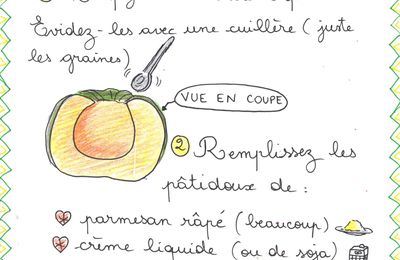 Evidez-les avec une cuillère (juste
les graines)
VUE EN COUPE
2 Remplissez les
pâtidoux de :
parmesan râpé (beaucoup)
crème liquide (ou de soja)